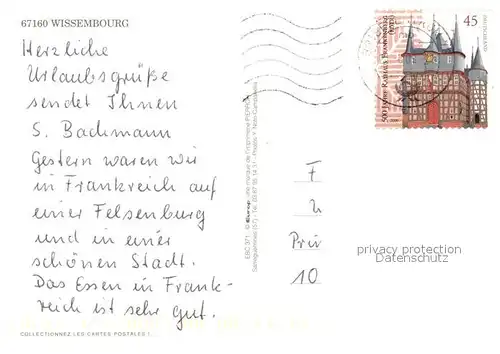 67160 WISSEMBOURG
Herzliche
Urlaubsgrüße
sendet Ihnen
S. Bachmann
Gestern waren wir
in Frankreich auf
einer Felsenburg
und in einer
schönen Stadt.
Das Essen in Frank-
reich ist sehr gut.
COLLECTIONNEZ LES CARTES POSTALES !
EBC 371
45
DEUTSCHLAND
500 JAHRE RATHAUS FRANKENBERG
(EDER)
F
Priv
10
privacy protection
Datenschutz